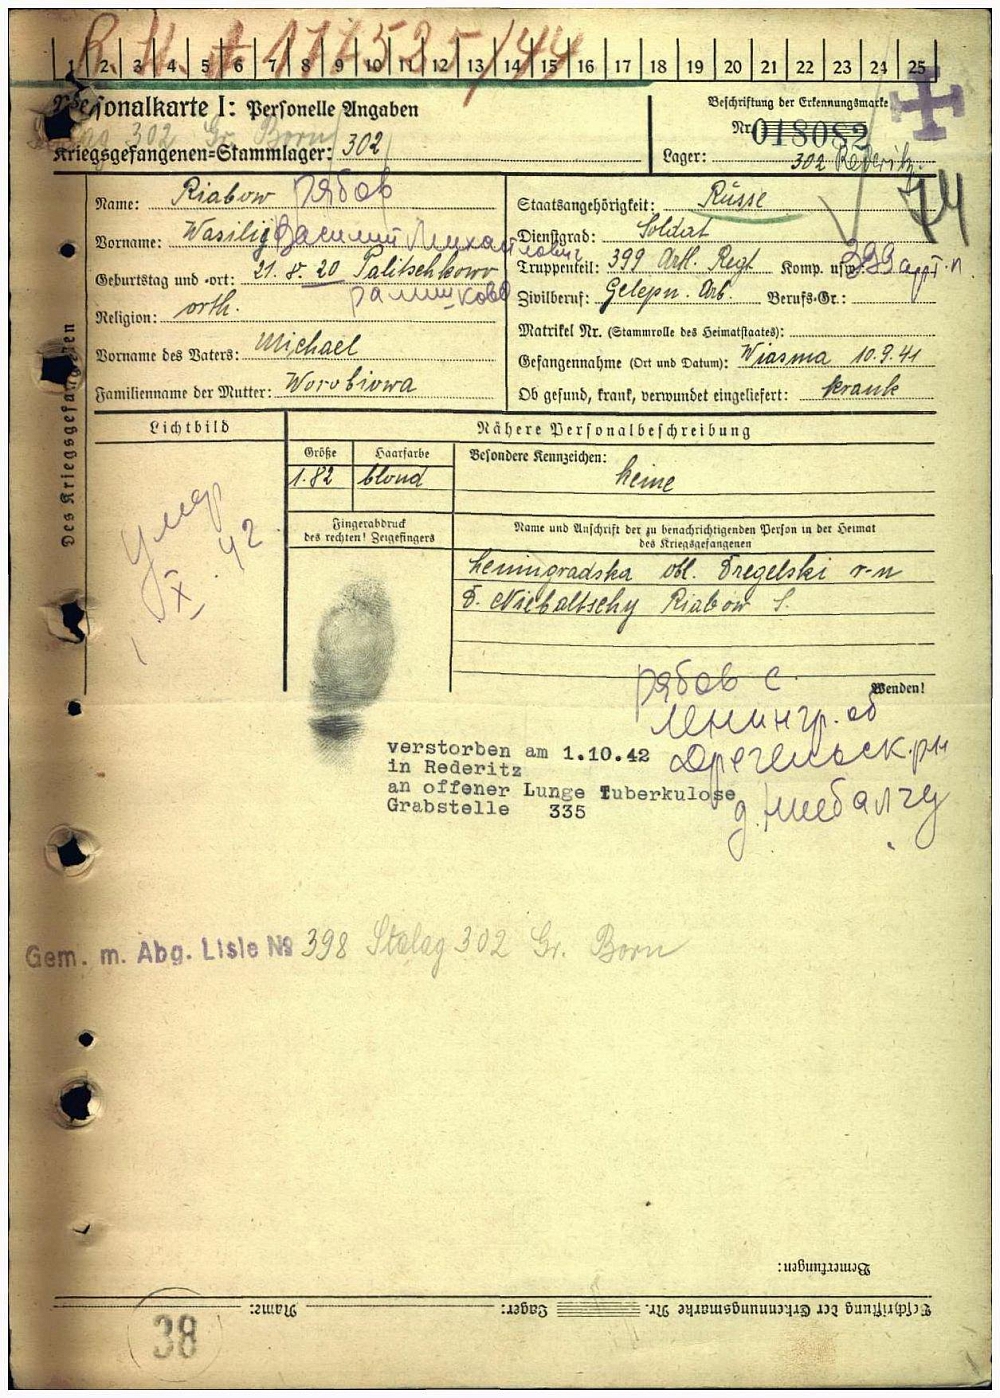 R. St. A 171525/44
1 2 3 4 5 6 7 8 9 10 11 12 13 14 15 16 17 18 19 20 21 22 23 24 25
Personalkarte I: Personelle Angaben
Beschriftung der Erkennungsmarke
Nr. 018082
302 Gr. Born
Kriegsgefangenen-Stammlager: 302
Lager: 302 Rederitz
74
Des Kriegsgefangenen
Name: Riabow Рябов
Vorname: Wasilig Василий Михайлович
Geburtstag und -ort: 21. 8. 20 Palitschkowo
Religion: orth.
Vorname des Vaters: Michael
Familienname der Mutter: Worobiowa
Staatsangehörigkeit: Russe
Dienstgrad: Soldat
Truppenteil: 399 Artl. Regt Komp. usw.: 399 арт. п.
Zivilberuf: Gelegn. Arb. Berufs-Gr.:
Matrikel Nr. (Stammrolle des Heimatstaates):
Gefangennahme (Ort und Datum): Wiasma 10.9.41
Ob gesund, krank, verwundet eingeliefert: krank
Lichtbild
Nähere Personalbeschreibung
Größe Haarfarbe Besondere Kennzeichen:
1.82 blond keine
умер
1 X 42
Fingerabdruck
des rechten! Zeigefingers
Name und Anschrift der zu benachrichtigenden Person in der Heimat
des Kriegsgefangenen
Leningradska obl. Dregelski r-n
D. Niebaltschy Riabow S.
Wenden!
Рябов С.
Ленингр. об
Дрегельск. рн
д. Ниебалчу
verstorben am 1.10.42
in Rederitz
an offener Lunge Tuberkulose
Grabstelle 335
Gem. m. Abg. Liste № 398 Stalag 302 Gr. Born
Bemerkungen:
Beschriftung der Erkennungsmarke Nr. Lager: Name:
38